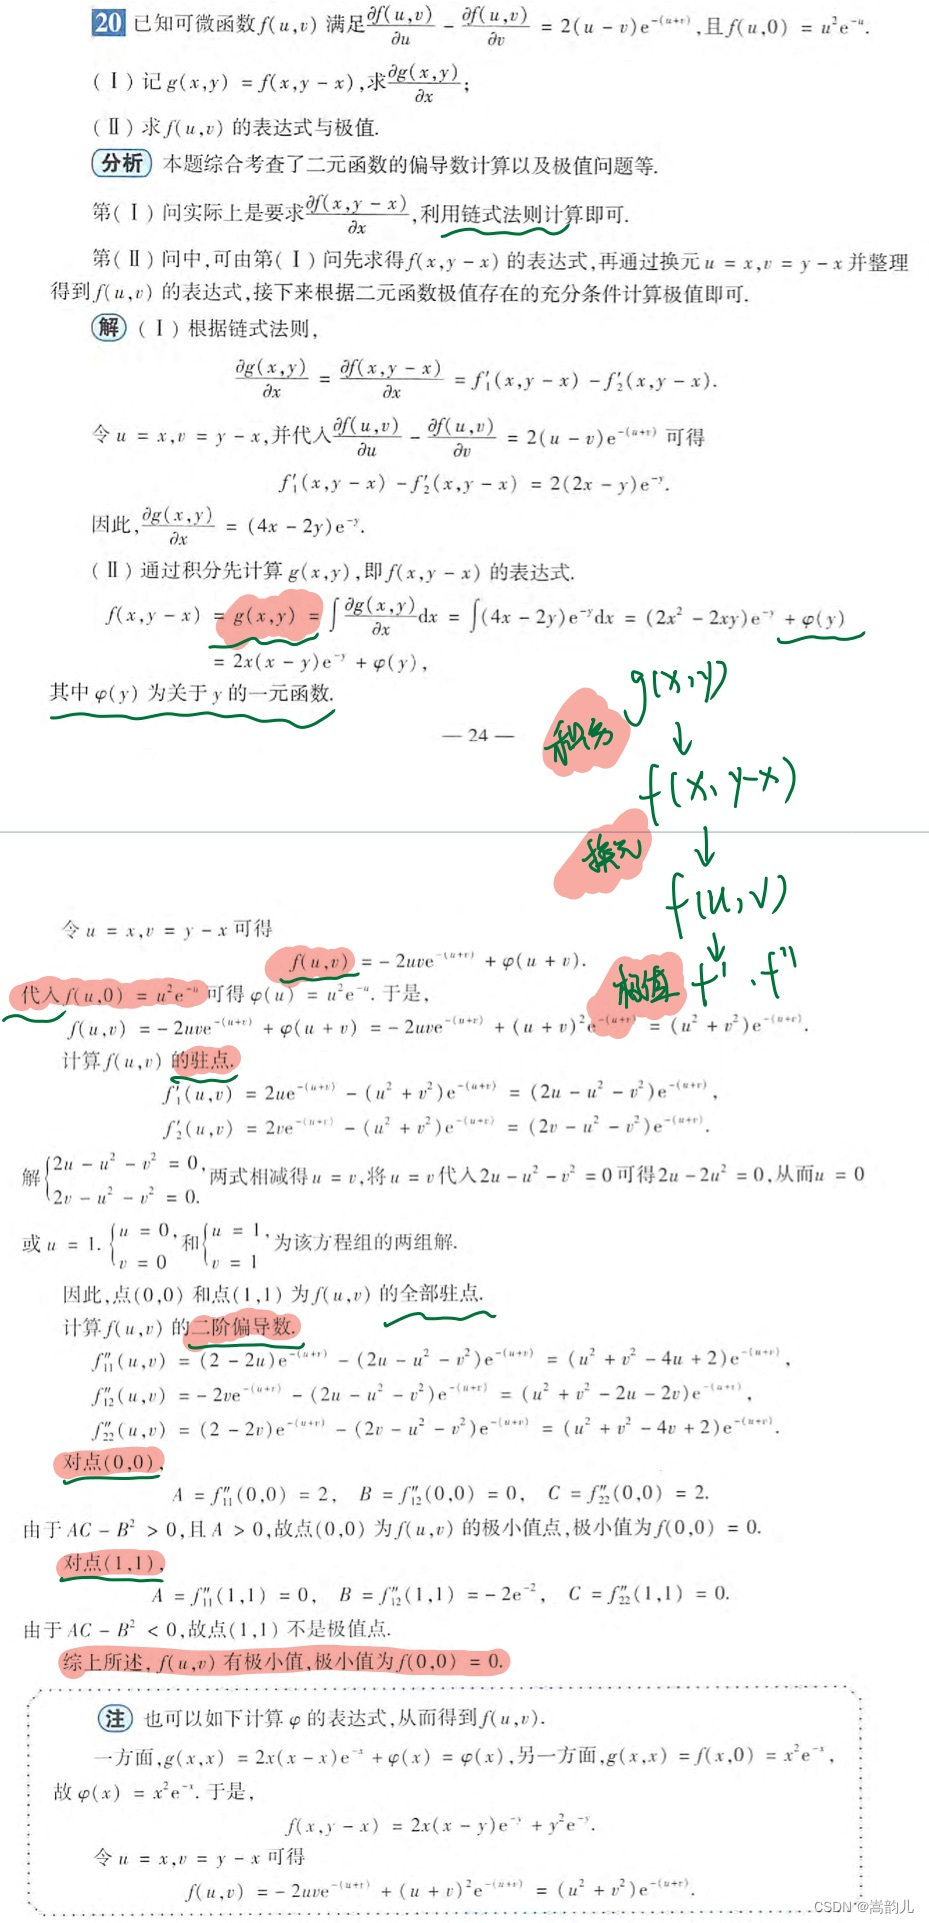 20 已知可微函数f(u,v) 满足∂f(u,v)/∂u - ∂f(u,v)/∂v = 2(u - v)e^{-(u+v)},且f(u,0) = u²e^{-u}.
(Ⅰ) 记g(x,y) = f(x,y - x),求∂g(x,y)/∂x;
(Ⅱ) 求f(u,v) 的表达式与极值.
分析 本题综合考查了二元函数的偏导数计算以及极值问题等.
第(Ⅰ) 问实际上是要求∂f(x,y - x)/∂x,利用链式法则计算即可.
第(Ⅱ) 问中,可由第(Ⅰ) 问先求得f(x,y - x) 的表达式,再通过换元u = x,v = y - x并整理
得到f(u,v) 的表达式,接下来根据二元函数极值存在的充分条件计算极值即可.
解 (Ⅰ) 根据链式法则,
∂g(x,y)/∂x = ∂f(x,y - x)/∂x = f′₁(x,y - x) - f′₂(x,y - x).
令u = x,v = y - x,并代入∂f(u,v)/∂u - ∂f(u,v)/∂v = 2(u - v)e^{-(u+v)} 可得
f′₁(x,y - x) - f′₂(x,y - x) = 2(2x - y)e^{-y}.
因此,∂g(x,y)/∂x = (4x - 2y)e^{-y}.
(Ⅱ) 通过积分先计算g(x,y),即f(x,y - x) 的表达式.
f(x,y - x) = g(x,y) = ∫∂g(x,y)/∂x dx = ∫(4x - 2y)e^{-y}dx = (2x² - 2xy)e^{-y} + φ(y)
= 2x(x - y)e^{-y} + φ(y),
其中φ(y) 为关于y的一元函数.
g(x,y)
— 24 —
积分
↓
f(x, y-x)
换元
↓
f(u,v)
令u = x,v = y - x可得
↓
f(u,v) = - 2uve^{-(u+v)} + φ(u + v).
极值 f′ . f″
代入f(u,0) = u²e^{-u}可得φ(u) = u²e^{-u}. 于是,
f(u,v) = - 2uve^{-(u+v)} + φ(u + v) = - 2uve^{-(u+v)} + (u + v)²e^{-(u+v)} = (u² + v²)e^{-(u+v)}.
计算f(u,v) 的驻点.
f′₁(u,v) = 2ue^{-(u+v)} - (u² + v²)e^{-(u+v)} = (2u - u² - v²)e^{-(u+v)},
f′₂(u,v) = 2ve^{-(u+v)} - (u² + v²)e^{-(u+v)} = (2v - u² - v²)e^{-(u+v)}.
解{2u - u² - v² = 0, 2v - u² - v² = 0. 两式相减得u = v,将u = v代入2u - u² - v² = 0可得2u - 2u² = 0,从而u = 0
或u = 1. {u = 0, v = 0 和{u = 1, v = 1 为该方程组的两组解.
因此,点(0,0) 和点(1,1) 为f(u,v) 的全部驻点.
计算f(u,v) 的二阶偏导数.
f″₁₁(u,v) = (2 - 2u)e^{-(u+v)} - (2u - u² - v²)e^{-(u+v)} = (u² + v² - 4u + 2)e^{-(u+v)},
f″₁₂(u,v) = - 2ve^{-(u+v)} - (2u - u² - v²)e^{-(u+v)} = (u² + v² - 2u - 2v)e^{-(u+v)},
f″₂₂(u,v) = (2 - 2v)e^{-(u+v)} - (2v - u² - v²)e^{-(u+v)} = (u² + v² - 4v + 2)e^{-(u+v)}.
对点(0,0),
A = f″₁₁(0,0) = 2, B = f″₁₂(0,0) = 0, C = f″₂₂(0,0) = 2.
由于AC - B² > 0,且A > 0,故点(0,0) 为f(u,v) 的极小值点,极小值为f(0,0) = 0.
对点(1,1),
A = f″₁₁(1,1) = 0, B = f″₁₂(1,1) = - 2e^{-2}, C = f″₂₂(1,1) = 0.
由于AC - B² < 0,故点(1,1) 不是极值点.
综上所述, f(u,v) 有极小值,极小值为f(0,0) = 0.
注 也可以如下计算φ的表达式,从而得到f(u,v).
一方面,g(x,x) = 2x(x - x)e^{-x} + φ(x) = φ(x),另一方面,g(x,x) = f(x,0) = x²e^{-x},
故φ(x) = x²e^{-x}. 于是,
f(x,y - x) = 2x(x - y)e^{-y} + y²e^{-y}.
令u = x,v = y - x可得
f(u,v) = - 2uve^{-(u+v)} + (u + v)²e^{-(u+v)} = (u² + v²)e^{-(u+v)}.
CSDN @嵩韵儿